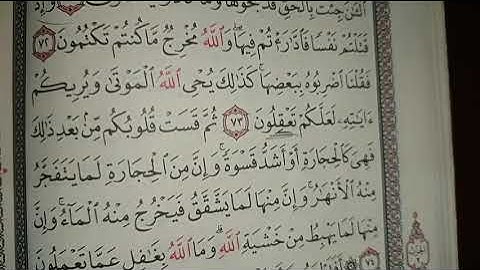 ٱلْـَٰٔنَ جِئْتَ بِٱلْحَقِّ فَذَبَحُوهَا وَمَا
قَتَلْتُمْ نَفْسًا فَٱدَّٰرَْٰٔتُمْ فِيهَا وَٱللَّهُ مُخْرِجٌ مَّا كُنتُمْ تَكْتُمُونَ ٧٢
فَقُلْنَا ٱضْرِبُوهُ بِبَعْضِهَا كَذَٰلِكَ يُحْىِ ٱللَّهُ ٱلْمَوْتَىٰ وَيُرِيكُمْ
ءَايَٰتِهِۦ لَعَلَّكُمْ تَعْقِلُونَ ٧٣ ثُمَّ قَسَتْ قُلُوبُكُم مِّنۢ بَعْدِ ذَٰلِكَ
فَهِىَ كَٱلْحِجَارَةِ أَوْ أَشَدُّ قَسْوَةً وَإِنَّ مِنَ ٱلْحِجَارَةِ لَمَا يَتَفَجَّرُ
مِنْهُ ٱلْأَنْهَٰرُ وَإِنَّ مِنْهَا لَمَا يَشَّقَّقُ فَيَخْرُجُ مِنْهُ ٱلْمَآءُ وَإِنَّ
مِنْهَا لَمَا يَهْبِطُ مِنْ خَشْيَةِ ٱللَّهِ وَمَا ٱللَّهُ بِغَٰفِلٍ عَمَّا تَعْمَلُونَ